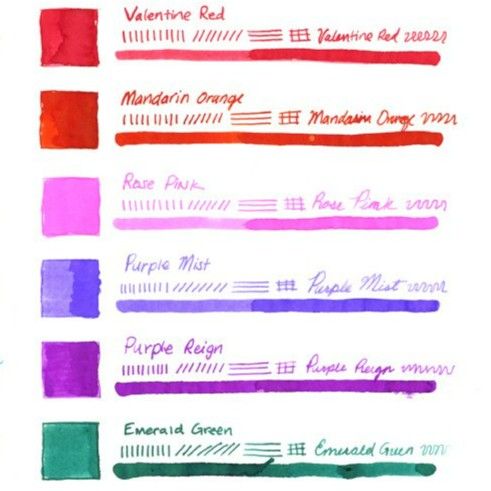 Valentine Red
Valentine Red
Mandarin Orange
Mandarin Orange
Rose Pink
Rose Pink
Purple Mist
Purple Mist
Purple Reign
Purple Reign
Emerald Green
Emerald Green